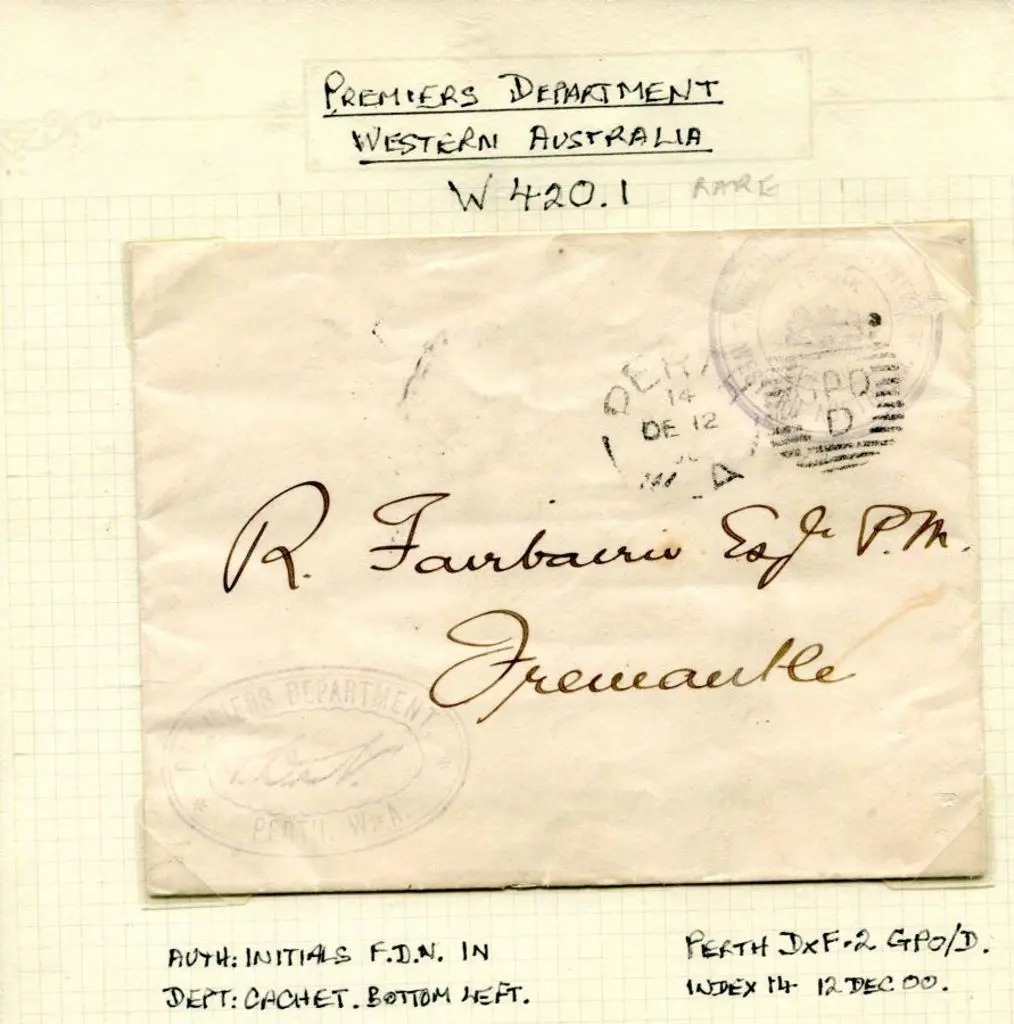 PREMIERS DEPARTMENT
WESTERN AUSTRALIA
W 420.1 RARE
14
DE 12
W A
GPO
D
R. Fairbairn Esqr P.M.
Fremantle
PREMIERS DEPARTMENT
PERTH. W.A.
AUTH: INITIALS F.D.N. IN
DEPT: CACHET. BOTTOM LEFT.
PERTH DxF-2 GPO/D.
INDEX 14 12 DEC 00.